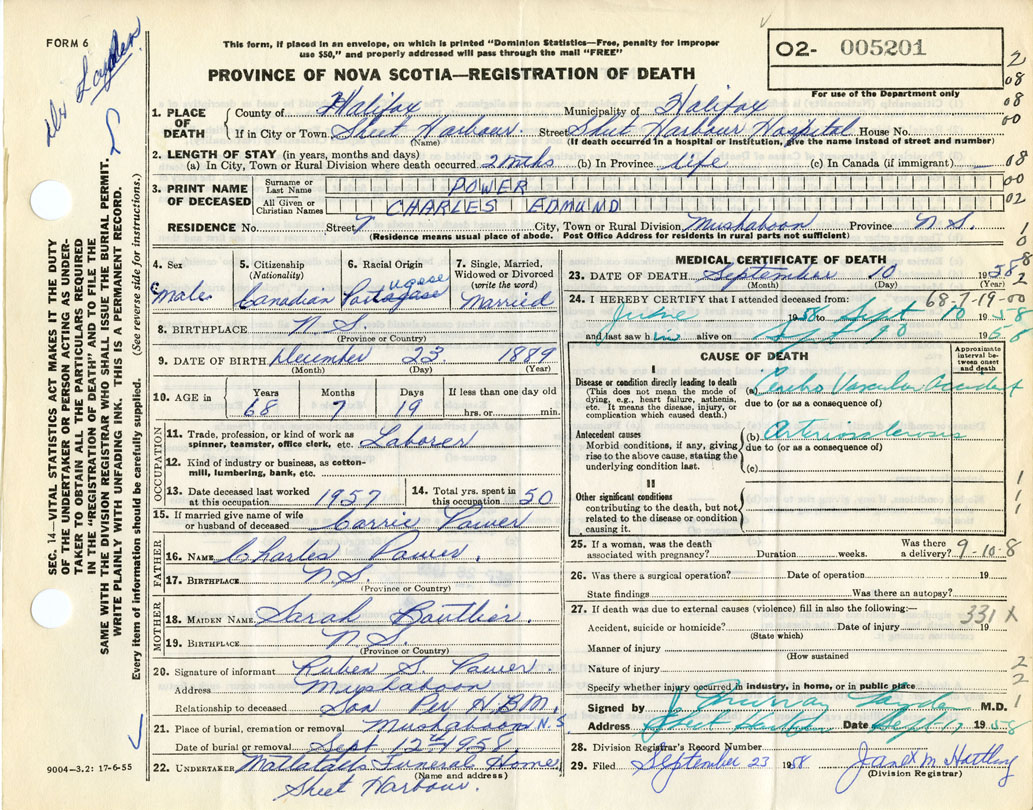 FORM 6
Dr Layden
This form, if placed in an envelope, on which is printed "Dominion Statistics—Free, penalty for improper
use $50," and properly addressed will pass through the mail "FREE"
O2- 005201
For use of the Department only
PROVINCE OF NOVA SCOTIA—REGISTRATION OF DEATH
2
08
08
00
1. PLACE OF DEATH
County of Halifax Municipality of Halifax
If in City or Town Sheet Harbour. Street Hospital House No.
(Name) (If death occurred in a hospital or institution, give name instead of street and number)
2. LENGTH OF STAY (in years, months and days)
(a) In City, Town or Rural Division where death occurred 2 mths (b) In Province life (c) In Canada (if immigrant) 08
3. PRINT NAME OF DECEASED
Surname or Last Name POWER 00
All Given or Christian Names CHARLES EDMUND 02
RESIDENCE No. Street City, Town or Rural Division Mushaboon Province N.S.
(Residence means usual place of abode. Post Office Address for residents in rural parts not sufficient)
4. Sex Male
5. Citizenship (Nationality) Canadian
6. Racial Origin
7. Single, Married, Widowed or Divorced (write the word) Married
8. BIRTHPLACE N.S.
(Province or Country)
9. DATE OF BIRTH December 23 1889
(Month) (Day) (Year)
10. AGE in Years 68 Months 7 Days 19 If less than one day old
hrs. or min.
OCCUPATION
11. Trade, profession, or kind of work as spinner, teamster, office clerk, etc. Laborer
12. Kind of industry or business, as cotton-mill, lumbering, bank, etc.
13. Date deceased last worked at this occupation 1957
14. Total yrs. spent in this occupation 50
15. If married give name of wife or husband of deceased Carrie Power
FATHER
16. NAME Charles Power.
17. BIRTHPLACE N.S.
(Province or Country)
MOTHER
18. MAIDEN NAME Sarah Boutlier.
19. BIRTHPLACE N.S.
(Province or Country)
20. Signature of informant Ruben S. Power.
Address Mushaboon
Relationship to deceased Son Per H.B.M.
21. Place of burial, cremation or removal Mushaboon N.S.
Date of burial or removal Sept. 12th 1958.
22. UNDERTAKER Funeral Home
(Name and address)
Sheet Harbour.
MEDICAL CERTIFICATE OF DEATH
23. DATE OF DEATH September 10 1958
(Month) (Day) (Year)
24. I HEREBY CERTIFY that I attended deceased from: 68-7-19-00
June 1958 to Sept 10 1958
and last saw him alive on Sept 1958
CAUSE OF DEATH
Approximate interval between onset and death
I
Disease or condition directly leading to death
(This does not mean the mode of dying, e.g., heart failure, asthenia, etc. It means the disease, injury, or complication which caused death.)
(a) Cerebro Vascular Accident
due to (or as a consequence of)
Antecedent causes
Morbid conditions, if any, giving rise to the above cause, stating the underlying condition last.
(b) Arteriosclerosis
due to (or as a consequence of)
(c)
II
Other significant conditions
contributing to the death, but not related to the disease or condition causing it.
1
1
1
25. If a woman, was the death associated with pregnancy? Duration weeks. Was there a delivery? 9-10-8
26. Was there a surgical operation? Date of operation 19
State findings Was there an autopsy?
27. If death was due to external causes (violence) fill in also the following:—
331 X
Accident, suicide or homicide? Date of injury 19
(State which)
Manner of injury
(How sustained
Nature of injury
Specify whether injury occurred in industry, in home, or in public place
2
2
1
Signed by J. Murray Layden M.D.
Address Sheet Harbour Date Sept 1958
28. Division Registrar's Record Number
29. Filed September 23 1958 Janet M Hartling
(Division Registrar)
SEC. 14—VITAL STATISTICS ACT MAKES IT THE DUTY
OF THE UNDERTAKER OR PERSON ACTING AS UNDER-
TAKER TO OBTAIN ALL THE PARTICULARS REQUIRED
IN THE "REGISTRATION OF DEATH" AND TO FILE THE
SAME WITH THE DIVISION REGISTRAR WHO SHALL ISSUE THE BURIAL PERMIT.
WRITE PLAINLY WITH UNFADING INK. THIS IS A PERMANENT RECORD.
Every item of information should be carefully supplied. (See reverse side for instructions.)
9004—3.2: 17-6-55